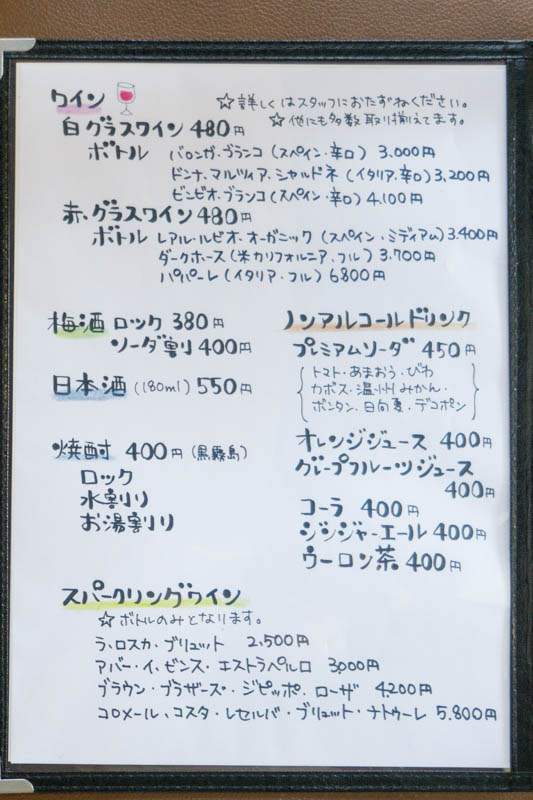 ワイン
☆詳しくはスタッフにおたずねください。
☆他にも多数取り揃えてます。
白グラスワイン 480円
ボトル バロンガ・ブランコ (スペイン・辛口) 3,000円
ドンナ・マルツィア・シャルドネ (イタリア・辛口) 3,200円
ビンビオ・ブランコ (スペイン・辛口) 4,100円
赤、グラスワイン 480円
ボトル レアル・ルビオ・オーガニック (スペイン・ミディアム) 3,400円
ダークホース (米カリフォルニア・フル) 3,700円
パパーレ (イタリア・フル) 6800円
梅酒 ロック 380円
ソーダ割り 400円
日本酒 (180ml) 550円
焼酎 400円 (黒霧島)
ロック
水割り
お湯割り
ノンアルコールドリンク
プレミアムソーダ 450円
トマト・あまおう・びわ
カボス・温州みかん・
ボンタン・日向夏・デコポン
オレンジジュース 400円
グレープフルーツジュース
400円
コーラ 400円
ジンジャーエール 400円
ウーロン茶 400円
スパークリングワイン
☆ボトルのみとなります。
ラ、ロスカ・ブリュット 2,500円
アバー・イ、ゼンス・エストラペルロ 3,000円
ブラウン・ブラザーズ・ジビッポ・ローザ 4,200円
コロメール、コスタ・レセルバ・ブリュット・ナトゥーレ 5,800円